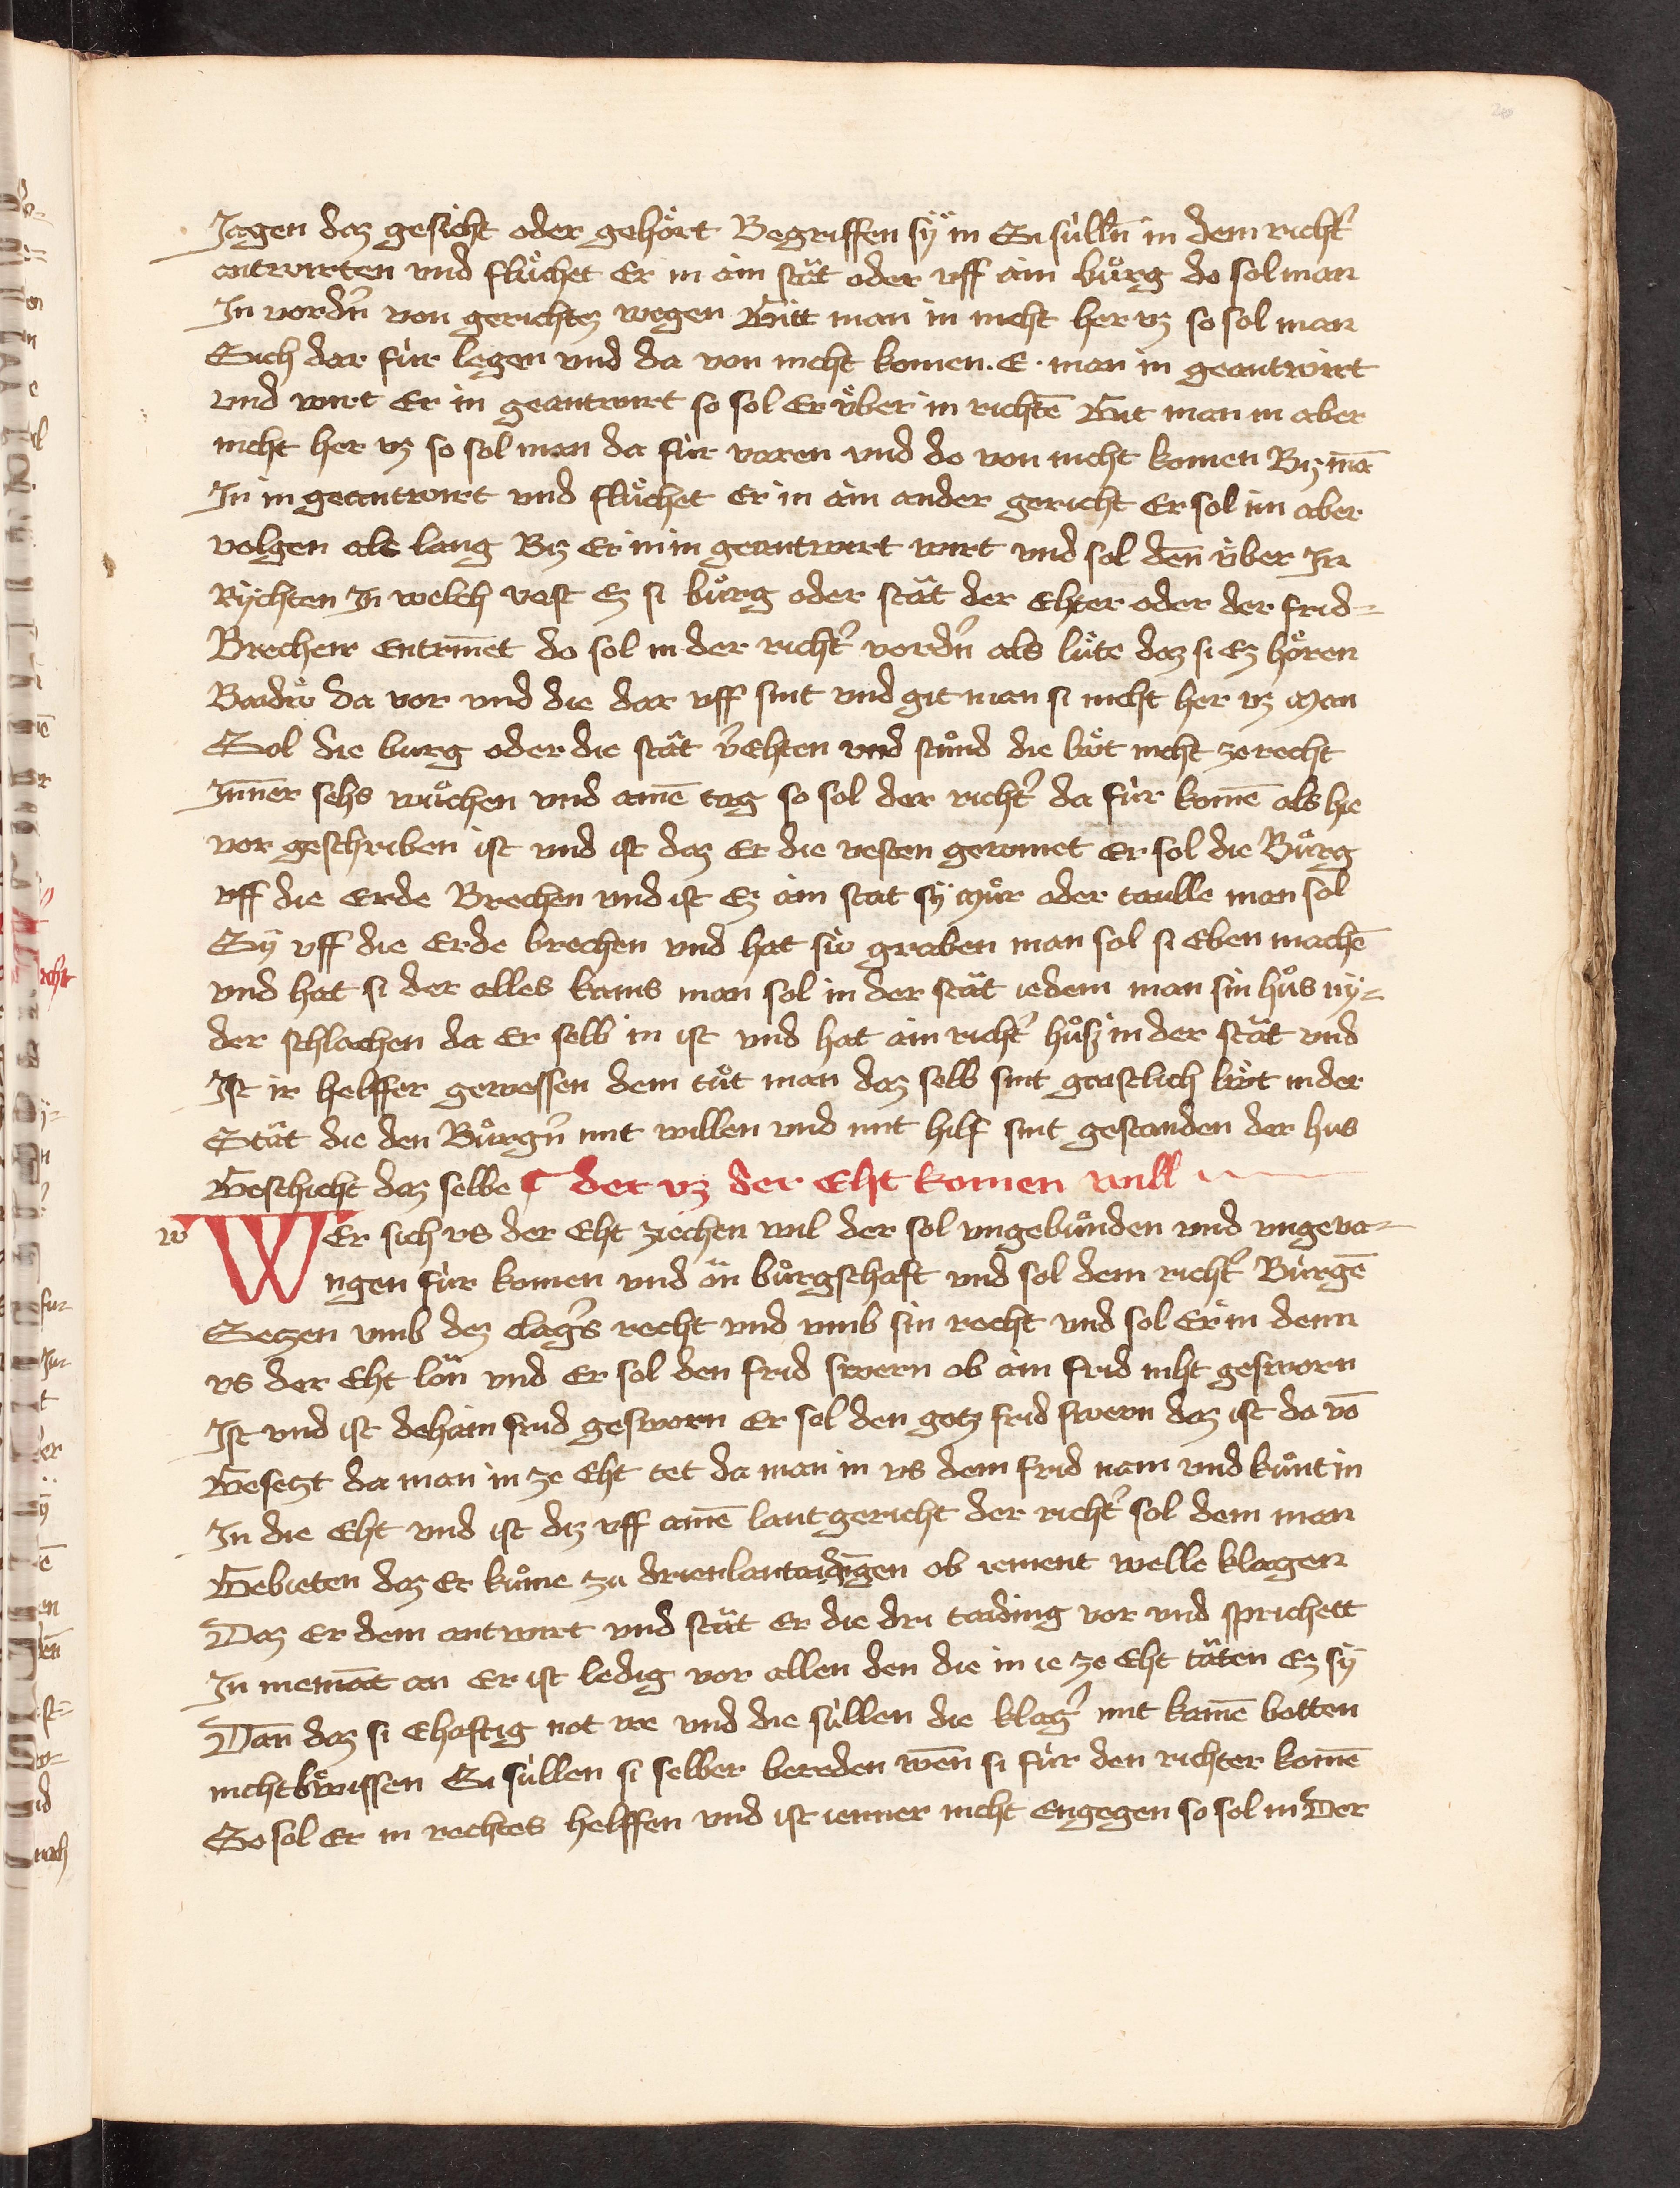 Jagen daz gesicht oder gehört Begriffen sÿ in Si sülln̄ in dem richt͛
antwurten vnd flu̍chet Er in ain stät oder vff ain bůrg do sol man
In vordn͛ von gerichtz wegen Gitt man in nicht her vz so sol man
Sich dar für legen vnd da von nicht komen. E. man in geantwirt
vnd wirt Er in geantwurt so sol Er v̈ber in richtē Git man in aber
nicht her vz so sol man da für varen vnd do von nicht komen Biz mā
In in geantwurt vnd flu̍chet Er in ain ander gericht Er sol im aber
volgen als lang Biz Er in in geantwurt wirt vnd sol den̄ v̈ber In
Rÿchten In welch vest Ez si bůrg oder stät der Ehter oder der frid-
Brecher Entrin̄et do sol in der richt͛ vordn͛ als lu̍te daz si Ez hören
Baidiv̍ da vor vnd die dar vff sint vnd git man si nicht her vz man
Sol die burg oder die stät v͛Ehten vnd stu̍nd die lv̍t nicht ze recht
Inn̄er sehs wůchen vnd ainē tag so sol der richt͛ da für komē als hie
vor geschriben ist vnd ist daz Er die vesten gewinnet Er sol die Bůrg
vff die Erde Brechen vnd ist Ez ain stat sÿ mu̍r oder taulle man sol
Sÿ vff die Erde brechen vnd hat siv graben man sol si Eben machē
vnd hat si der alles kains man sol in der stät iedem man sin hůs nÿ-
der schlachen da Er selb in ist vnd hat ain richt͛ hůsz in der stät vnd
Ist ir helffer gewessen dem tůt man daz selb sint gaistlich lv̍t in der
Stät die den Bůrgn͛ mit willen vnd mit hilf sint gestanden der hus
Geschicht daz selbe ¶ der vz der Eht komen will
w WEr sich vs der Eht ziechen wil der sol vngebůnden vnd vngeva-
ngen für komen vnd än bůrgschaft vnd sol dem richt͛ Bürgē
Setzen vmb dez clag͛s recht vnd vmb sin recht vnd sol Er in denn
vs der Eht lön vnd Er sol den frid swern ob ain frid niht gesworn
Ist vnd ist dehain frid gesworn Er sol den gotz frid swern daz ist da vō
Gesetzt da man in ze Eht tet da man in vs dem frid nam vnd kůnt in
In die Eht vnd ist diz vff ainē lantgericht der richt͛ sol dem man
Gebieten daz Er kůme zu drien lantaidīgen ob iement welle klagen
Daz Er dem antwurt vnd stät Er die dri taiding vor vnd sprichett
In niemāt an Er ist ledig vor allen den die in ie ze Eht täten Ez sÿ
Dan̄ daz si Ehaftig not irre vnd die süllen die klag͛ mit kainē botten
nicht bewissen Si süllen si selber bereden wen̄ si für den richter komē
So sol Er in rechtes helffen vnd ist ienner nicht Engegen so sol in Der